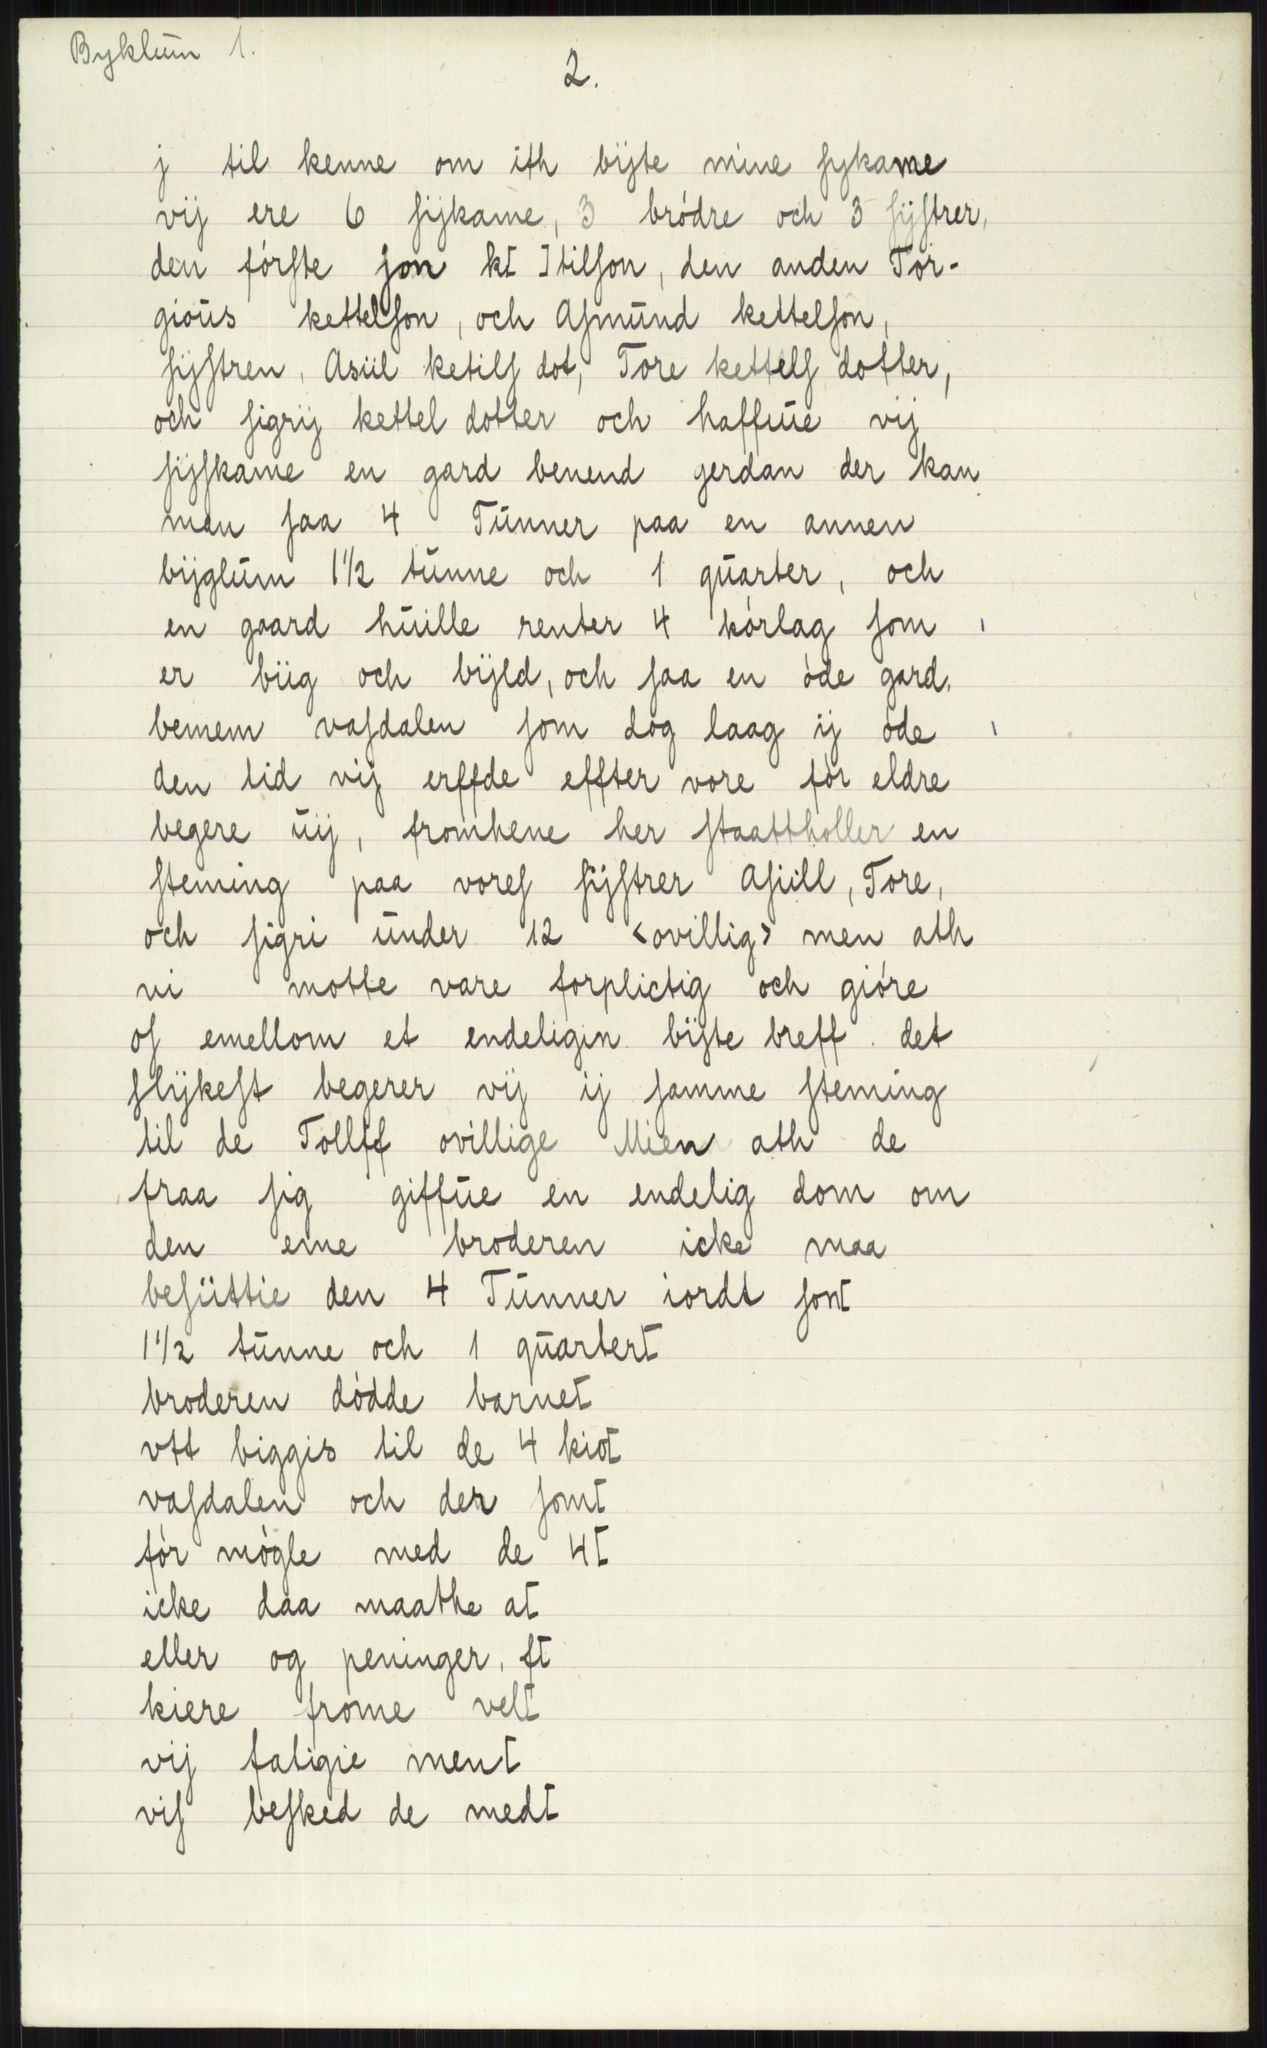 Byklum 1.
2.
j til kenne om ith bÿte mine sykame
vij ere 6 sijkame, 3 brödre och 3 sÿstrer,
den förste jon kt ]tilson, den anden Tor-
gioŭs kettelson, och Asmŭnd kettelson,
sijstren, Asiil ketils dot, Tore kettels dotter,
och sigrij kettel dotter och haffŭe vij
sijskame en gard benend gerdan der kan
man saa 4 Tŭnner paa en annen
bijglŭm 1½ tŭnne och 1 qŭarter, och
en gaard hŭille renter 4 kórlag som
er biig och bÿld, och saa en óde gard,
benem vasdalen som dog laag ij óde
den tid vij erffde effter vore fór eldre
begere ŭij, fromhene her staattholler en
steming paa vores sÿstrer Asiill, Tore,
och sigri ŭnder 12 <ovillig> men ath
vi motte vare forplictig och gióre
os emellom et endeligin bÿte breff. det
slÿkest begerer vij ij samme steming
til de Tollff ovillige Mien ath de
fraa sig giffŭe en endelig dom om
den ene broderen icke maa
besüttie den 4 Tŭnner iordt som[
1½ tŭnne och 1 qŭarter[
broderen dödde barne[
vtt biggis til de 4 kio[
vasdalen och der som[
fór mógle med de 4[
icke daa maathe a[
eller og peninger, f[
kiere frome vel[
vij fatigie men[
vis besked de med[